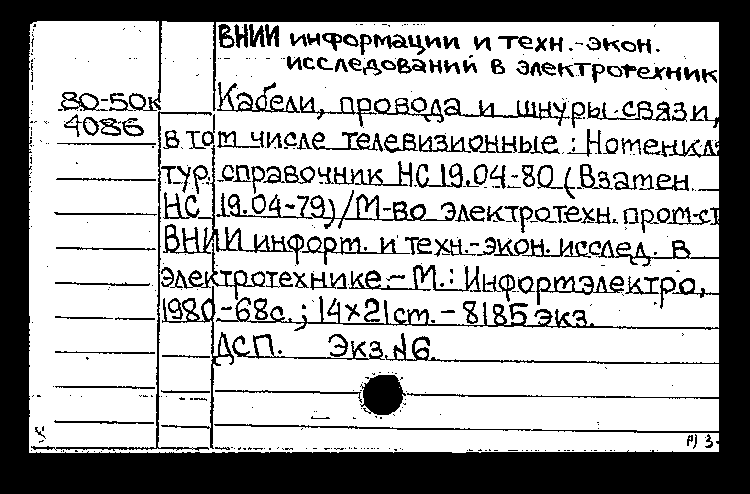 ВНИИ информации и техн.-экон.
исследований в электротехник
80-50к
4086
Кабели, провода и шнуры связи,
в том числе телевизионные : Номенкла
тур. справочник НС 19.04-80 (Взамен
НС 19.04-79)/М-во электротехн. пром-ст
ВНИИ информ. и техн.-экон. исслед. в
электротехнике.- М.: Информэлектро,
1980.-68с.; 14×21см.- 8185 экз.
ДСП. Экз.№6.